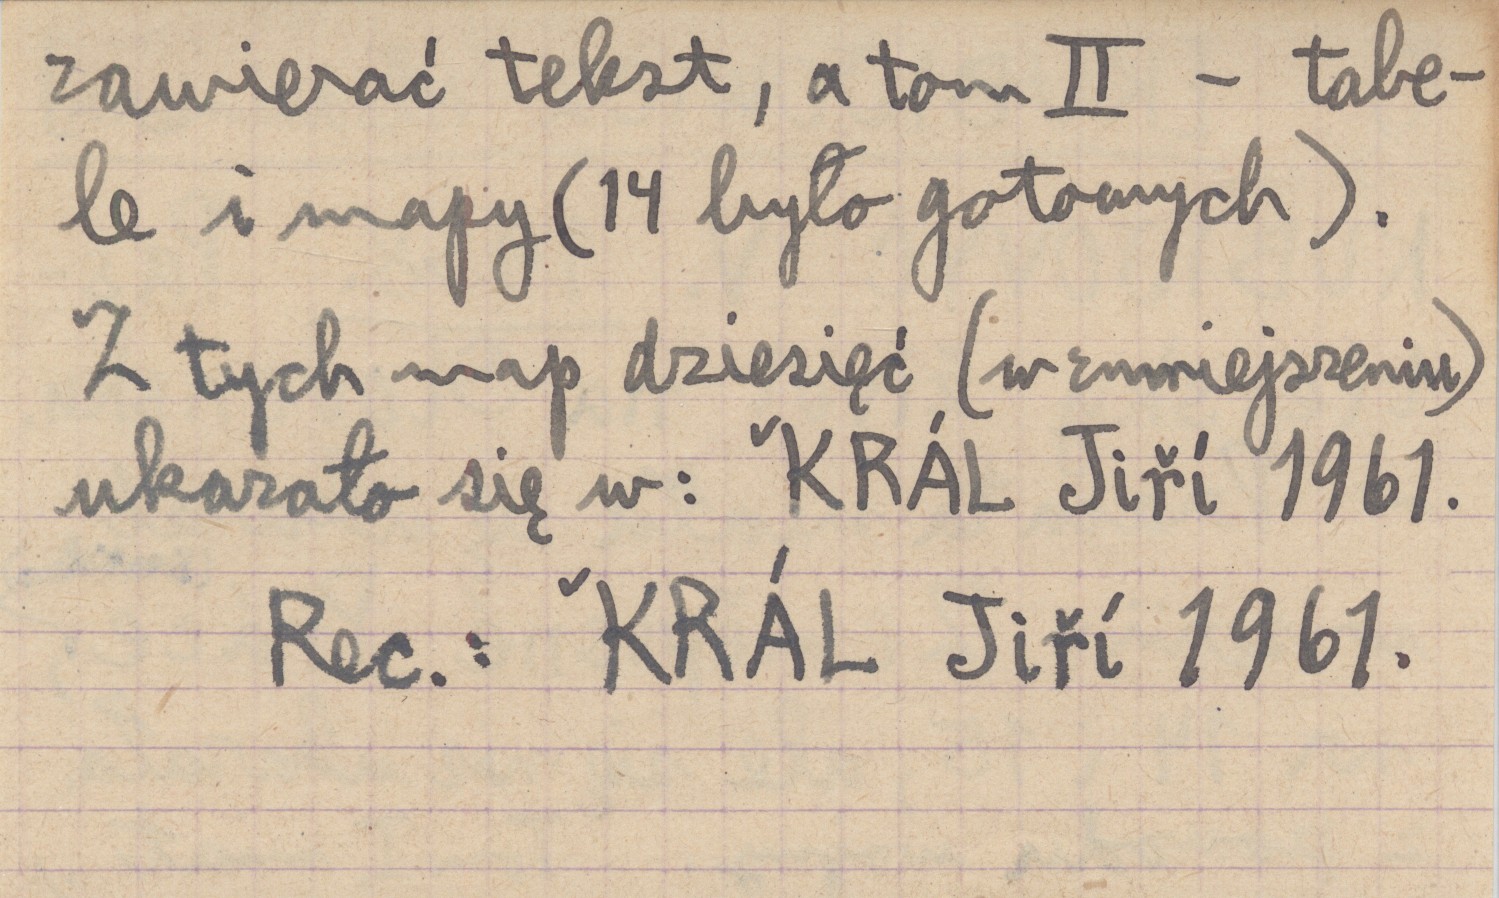 zawierać tekst, a tom II - tabe-
le i mapy (14 było gotowych).
Z tych map dziesięć (w zmniejszeniu)
ukazało się w: ˇKRÁL Jiří 1961.
Rec.: ˇKRÁL Jiří 1961.